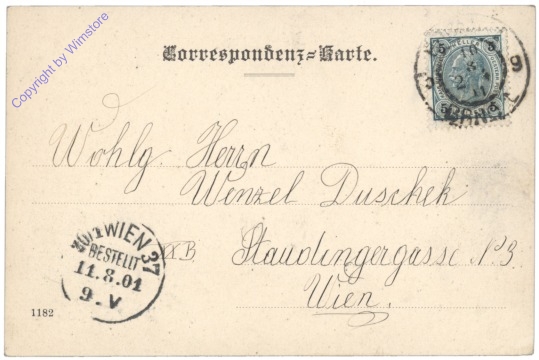 Copyright by Wimstore
Correspondenz-Karte.
5 5
9
5 5
Wohlg Herrn
Wenzel Duschek
XX.B Staudingergasse N.3
Wien.
WIEN 37
BESTELLT
11.8.01
9.V
1182